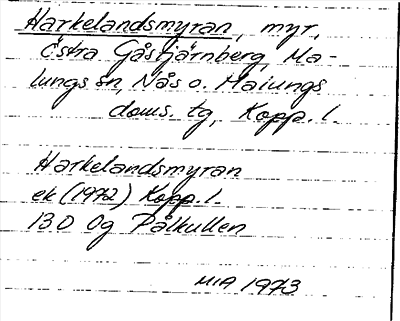 Harkelandsmyran, myr,
Östra Gåstjärnberg, Ma-
lungs sn, Nås o. Malungs
doms. tg, Kopp. l.
Harkelandsmyran
ek (1972) Kopp. l.
13D 0g Pålkullen
MIA 1973